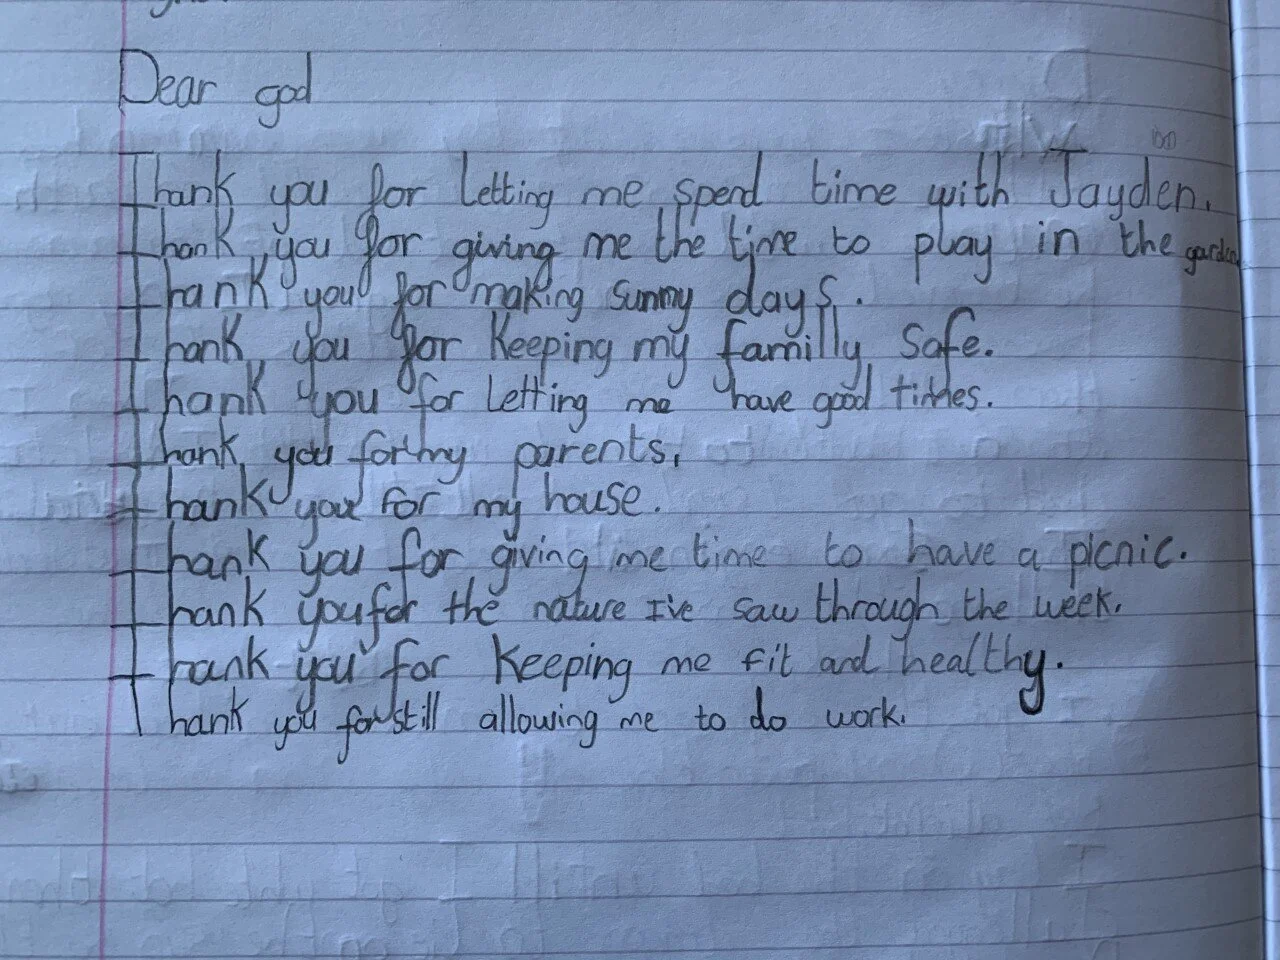 Dear god
Thank you for letting me spend time with Jayden.
Thank you for giving me the time to play in the garden
Thank you for making sunny days.
Thank you for keeping my familly safe.
Thank you for letting me have good times.
Thank you for my parents.
Thank you for my house.
Thank you for giving me time to have a picnic.
Thank you for the nature I've saw through the week.
Thank you for keeping me fit and healthy.
Thank you for still allowing me to do work.